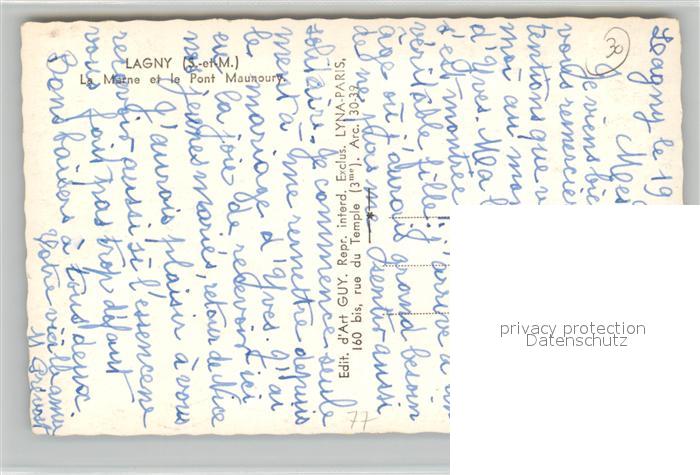 LAGNY (S.-et-M.)
La Marne et le Pont Maunoury.
Edit. d'Art GUY. Repr. interd. Exclus. LYNA-PARIS,
160 bis, rue du Temple (3me). Arc. 30-39.
30
77
Lagny le 19
Mes
Je viens bie
vous remercie
tentions que v
moi au mo
d'Yves. Ma
s'est montrée
véritable fille: j'arrive à un
âge où j'aurais grand besoin
de ne pas me sentir aussi
solitaire. Je commence seule
ment à me remettre depuis
le mariage d'Yves. J'ai
eu la joie de recevoir ici
nos jeunes mariés, retour de Nice
J'aurais plaisir à vous
recevoir aussi si l'essence ne
vous fait pas trop défaut
Bons baisers à tous deux.
Votre vieille amie
M Prévost
privacy protection
Datenschutz